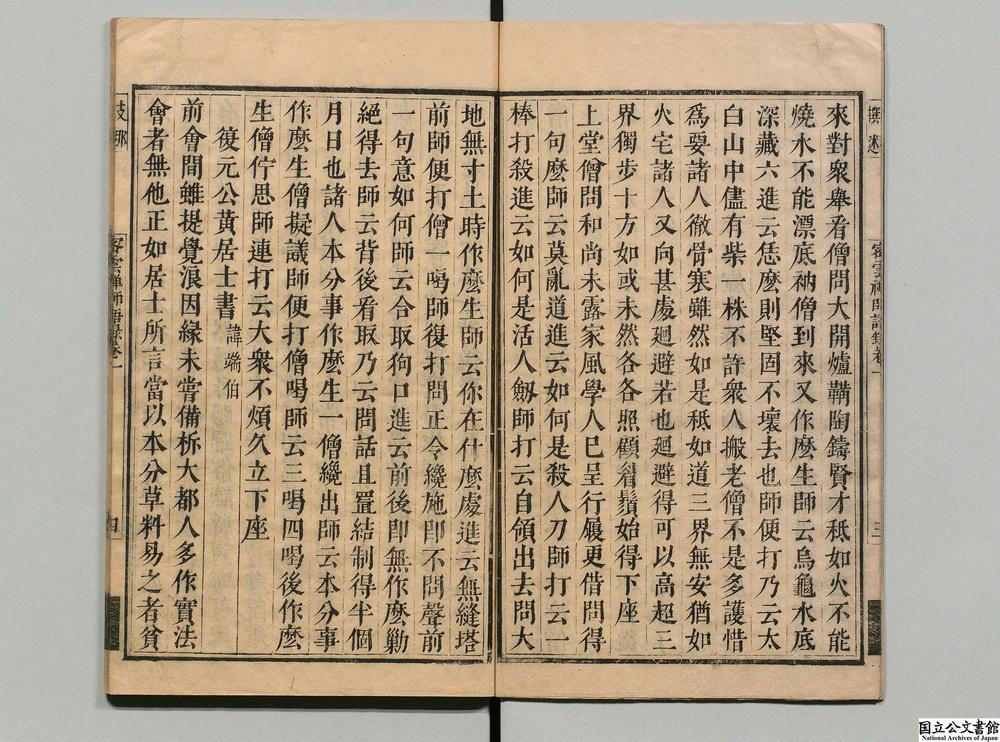 來對衆舉看僧問大開爐鞴陶鑄賢才秖如火不能
燒水不能漂底衲僧到來又作麽生師云烏龜水底
深藏六進云恁麽則堅固不壞去也師便打乃云太
白山中儘有柴一株不許衆人搬老僧不是多護惜
爲要諸人徹骨寒雖然如是秪如道三界無安猶如
火宅諸人又向甚處廻避若也廻避得可以高超三
界獨步十方如或未然各各照顧眉鬚始得下座
上堂僧問和尚未露家風學人已呈行履更借問得
一句麽師云莫亂道進云如何是殺人刀師打云一
棒打殺進云如何是活人劒師打云自領出去問大
地無寸土時作麽生師云你在什麽處進云無縫塔
前師便打僧一喝師復打問正令纔施即不問聲前
一句意如何師云合取狗口進云前後即無作麽勦
絕得去師云背後看取乃云問話且置結制得半個
月日也諸人本分事作麽生一僧纔出師云本分事
作麽生僧擬議師便打僧喝師云三喝四喝後作麽
生僧佇思師連打云大衆不煩久立下座
復元公黃居士書 諱端伯
前會間雖提覺浪因緣未嘗備柝大都人多作實法
會者無他正如居士所言當以本分草料易之者貧
密雲禪師語錄卷一
三
密雲禪師語錄卷一
四
国立公文書館
National Archives of Japan